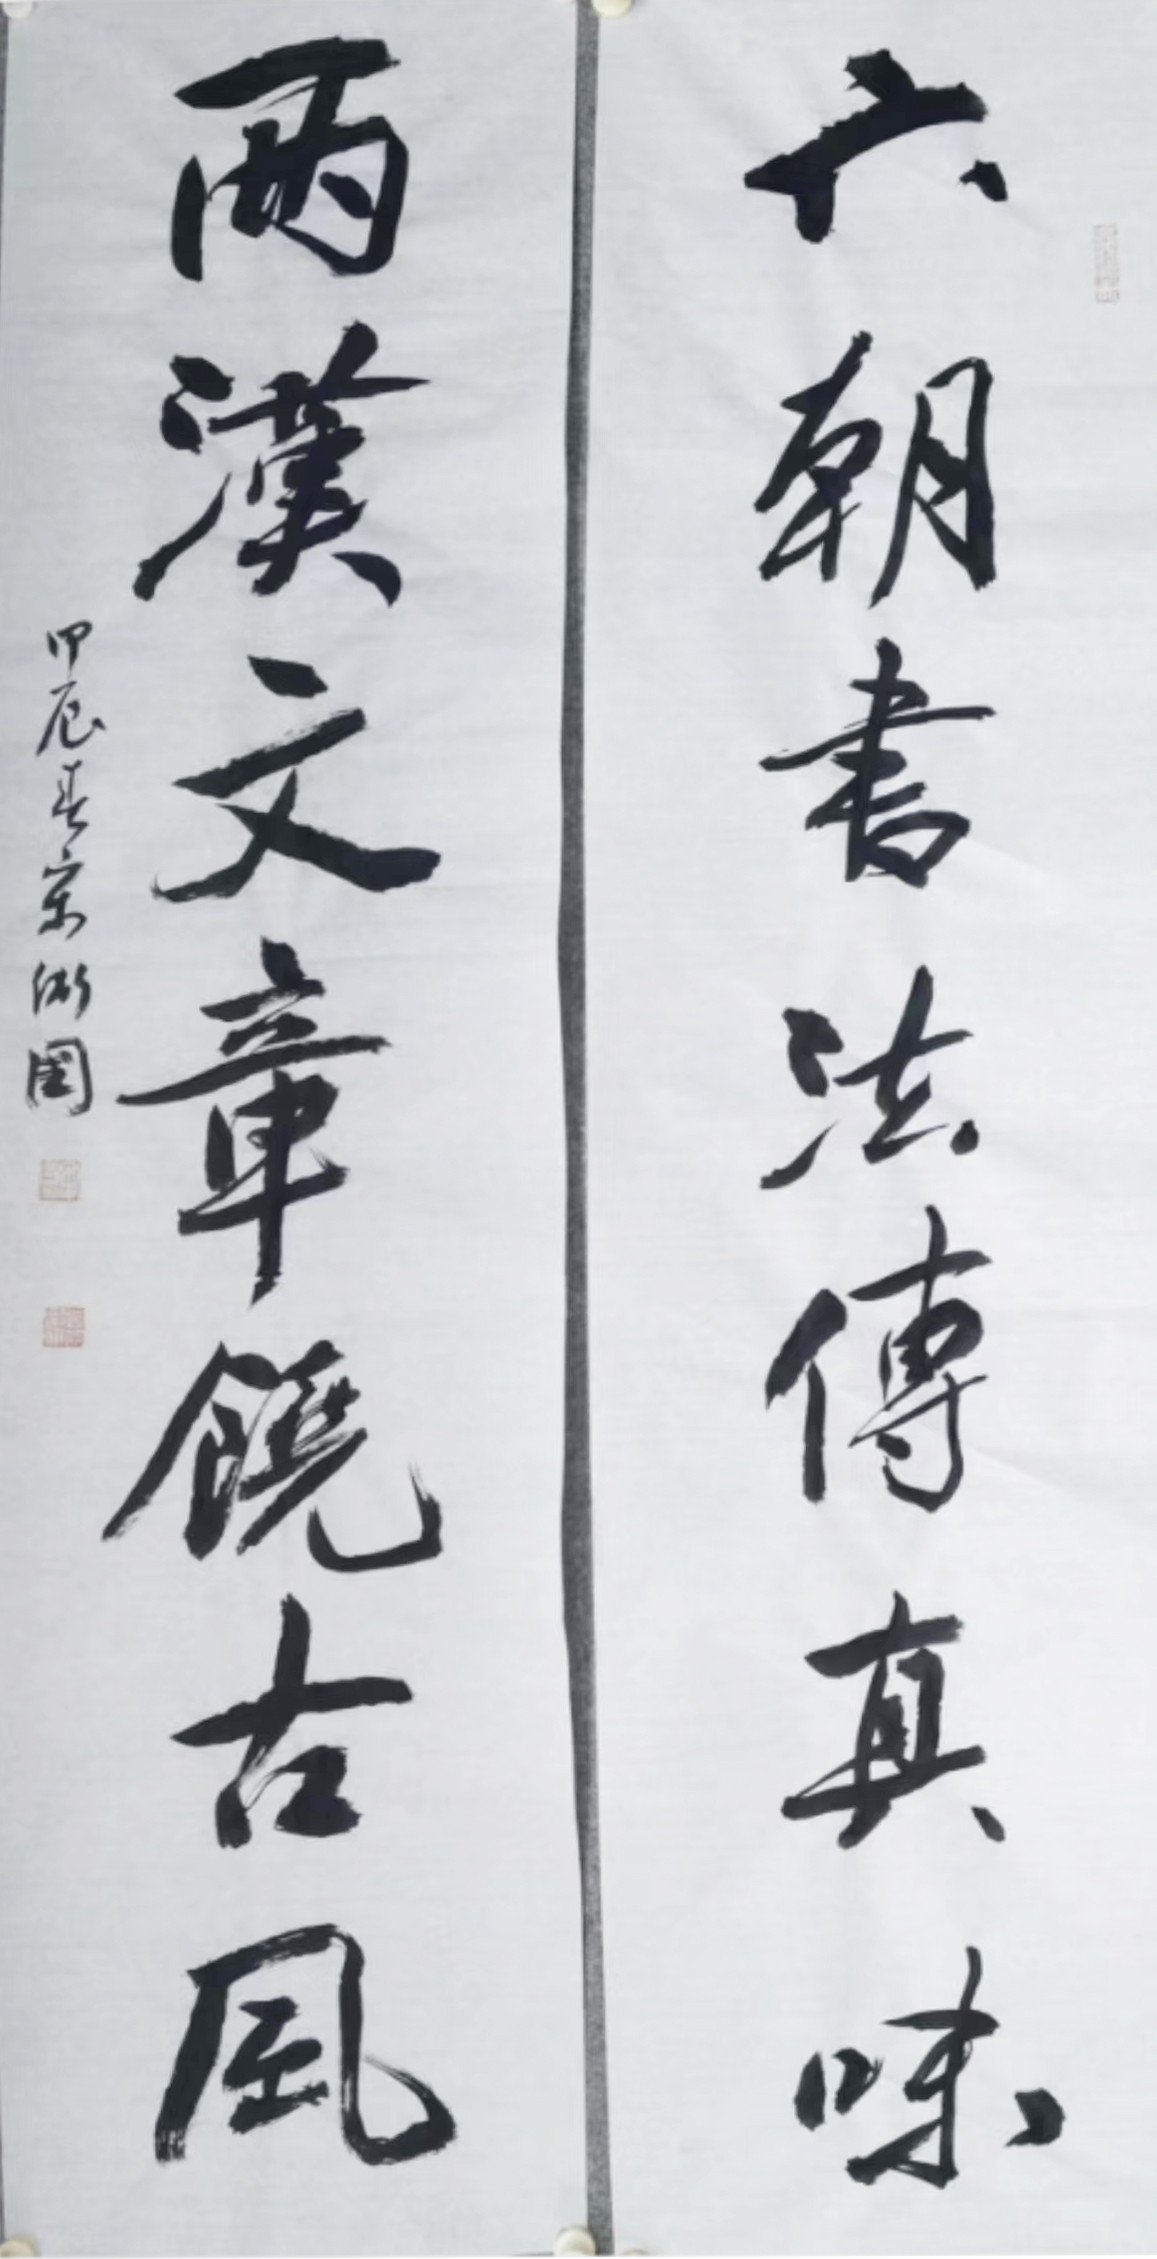 六朝書法傳真味
兩漢文章饒古風
甲辰春宗衛國